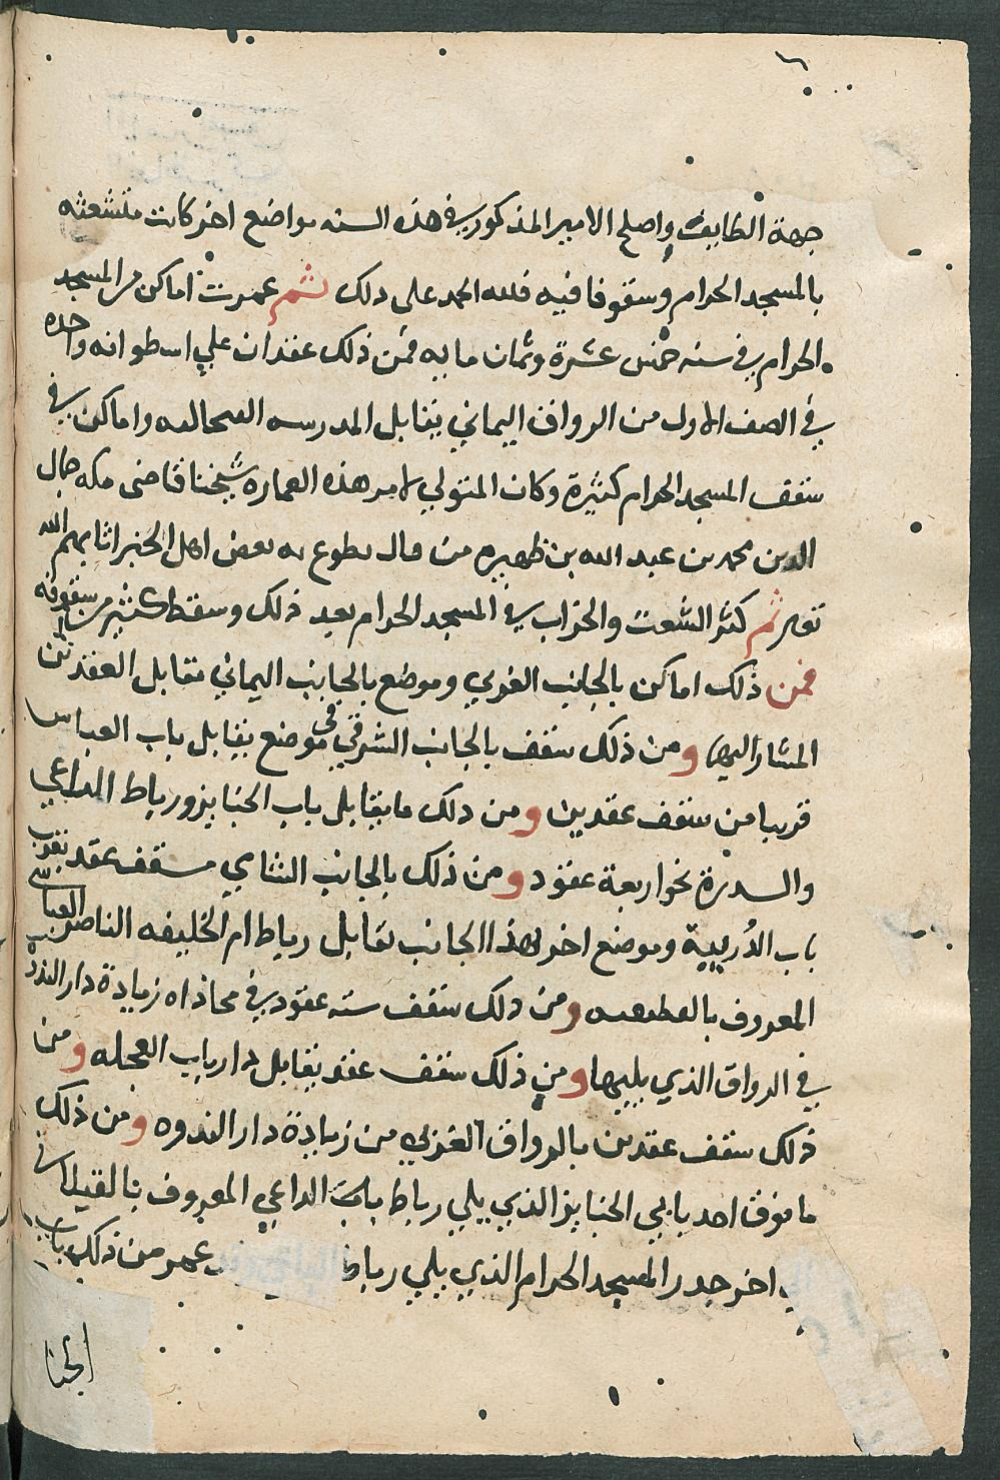 جهة الطايف واصلح الامير المذكور في هذه السنه مواضع اخر كانت متشعثه
بالمسجد الحرام وسقوفا فيه فلله الحمد على ذلك ثم عمرت اماكن من المسجد
الحرام في سنه خمس عشرة وثمان مايه فمن ذلك عقدان علي اسطوانه واحده
في الصف الاول من الرواق اليماني يقابل المدرسه البنجاليه واماكن في
سقف المسجد الحرام كثيرة وكان المتولي لامر هذه العماره شيخنا قاضى مكه جمال
الدين محمد بن عبد الله بن ظهيره من مال تطوع به بعض اهل الخير اثابهم الله
تعالى ثم كثر الشعث والخراب في المسجد الحرام بعد ذلك وسقط كثير من سقوفه
فمن ذلك اماكن بالجانب الغربي وموضع بالجانب اليماني مقابل العقدين
المشار اليهما ومن ذلك سقف بالجانب الشرقي في موضع يقابل باب العباس
قريبا من سقف عقدين ومن ذلك ما يقابل باب الجنايز ورباط المراغي
والسدرة نحو اربعة عقود ومن ذلك بالجانب الشامي سقف عقد بقرب
باب الدريبة وموضع اخر بهذا الجانب يقابل رباط ام الخليفه الناصر العباسي
المعروف بالعطيفيه ومن ذلك سقف سته عقود في محاذاه زيادة دار الندوة
في الرواق الذي يليها ومن ذلك سقف عقد يقابل دار باب العجله ومن
ذلك سقف عقدين بالرواق الغربي من زيادة دار الندوه ومن ذلك
ما فوق احد بابي الجنايز الذي يلي رباط المراغي المعروف بالقيلاني
اخر جدر المسجد الحرام الذي يلي رباط عمر من ذلك باب
الجنا